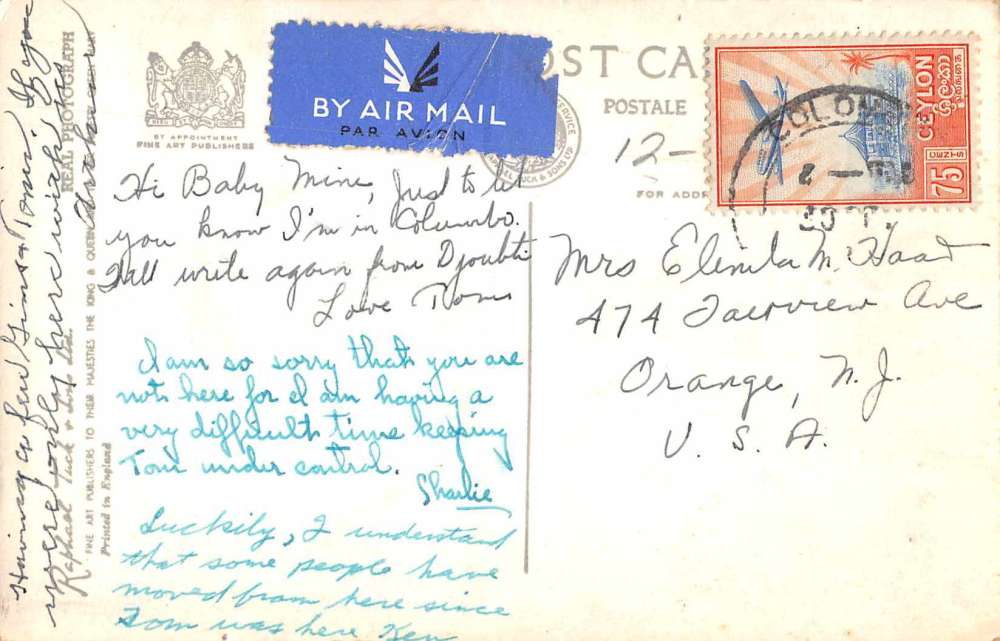 BY APPOINTMENT
FINE ART PUBLISHERS
BY AIR MAIL
PAR AVION
POST CA
POSTALE
12-
FOR ADDR
CEYLON
75
CENTS
COLOM
Hi Baby Mine, Just to let
you know I'm in Columbo.
Will write again from Djoubti
Love Tom
I am so sorry that you are
not here for I am having a
very difficult time keeping
Tom under control.
Charlie
Luckily, I understand
that some people have
moved from here since
Tom was here Ken
Mrs Elenita M. Haas
474 Fairview Ave
Orange, N.J.
U. S. A.
Having a few Gins & Tonic if you
were only here with us
REAL PHOTOGRAPH
Raphael Tuck & Sons Ltd.
FINE ART PUBLISHERS TO THEIR MAJESTIES THE KING & QUEEN
Printed in England